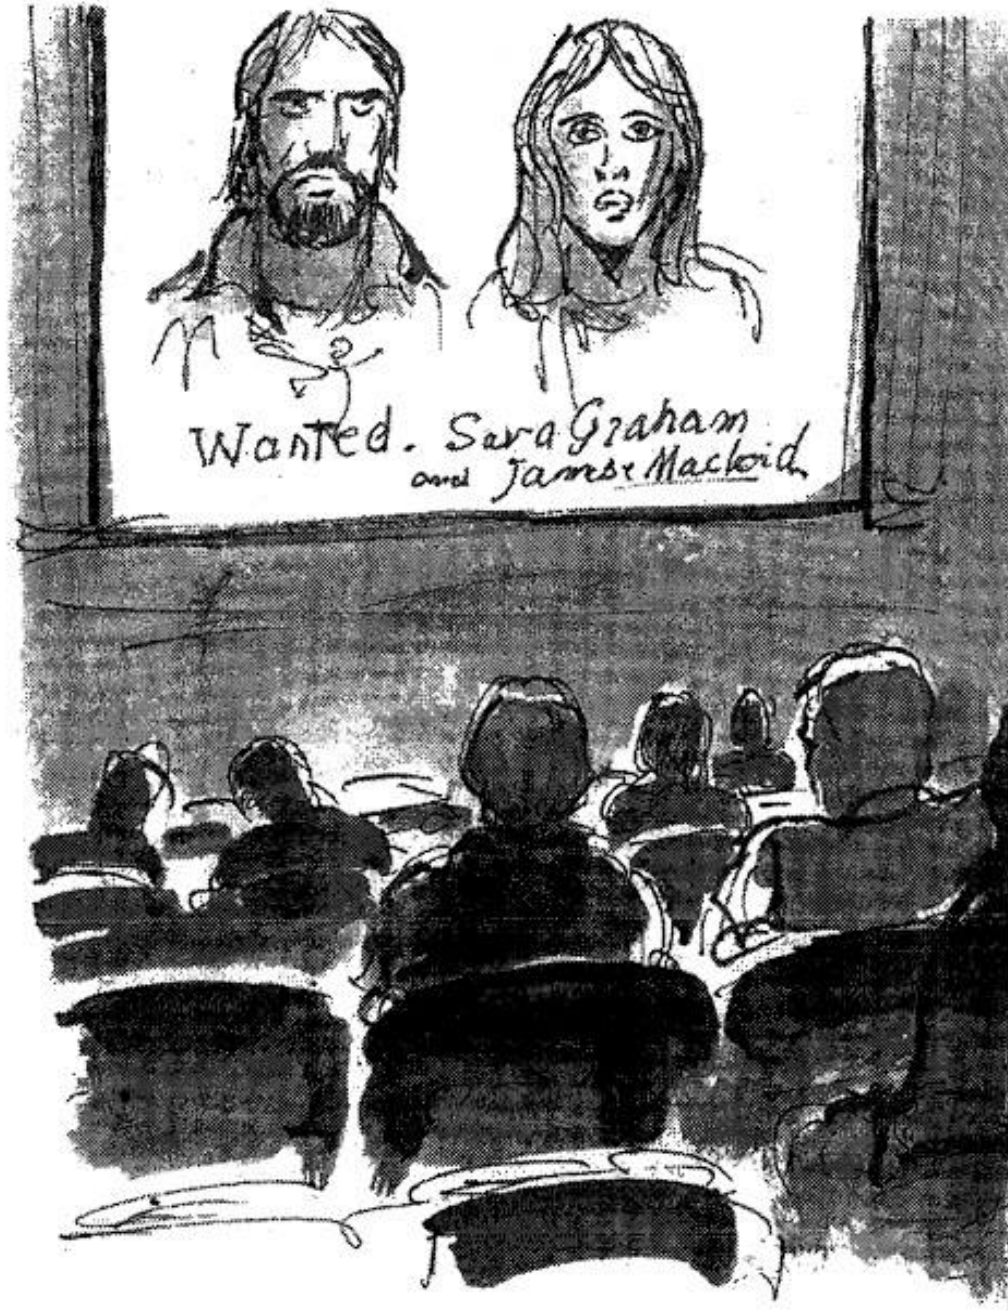 Wanted. Sara Graham
and James Macloid